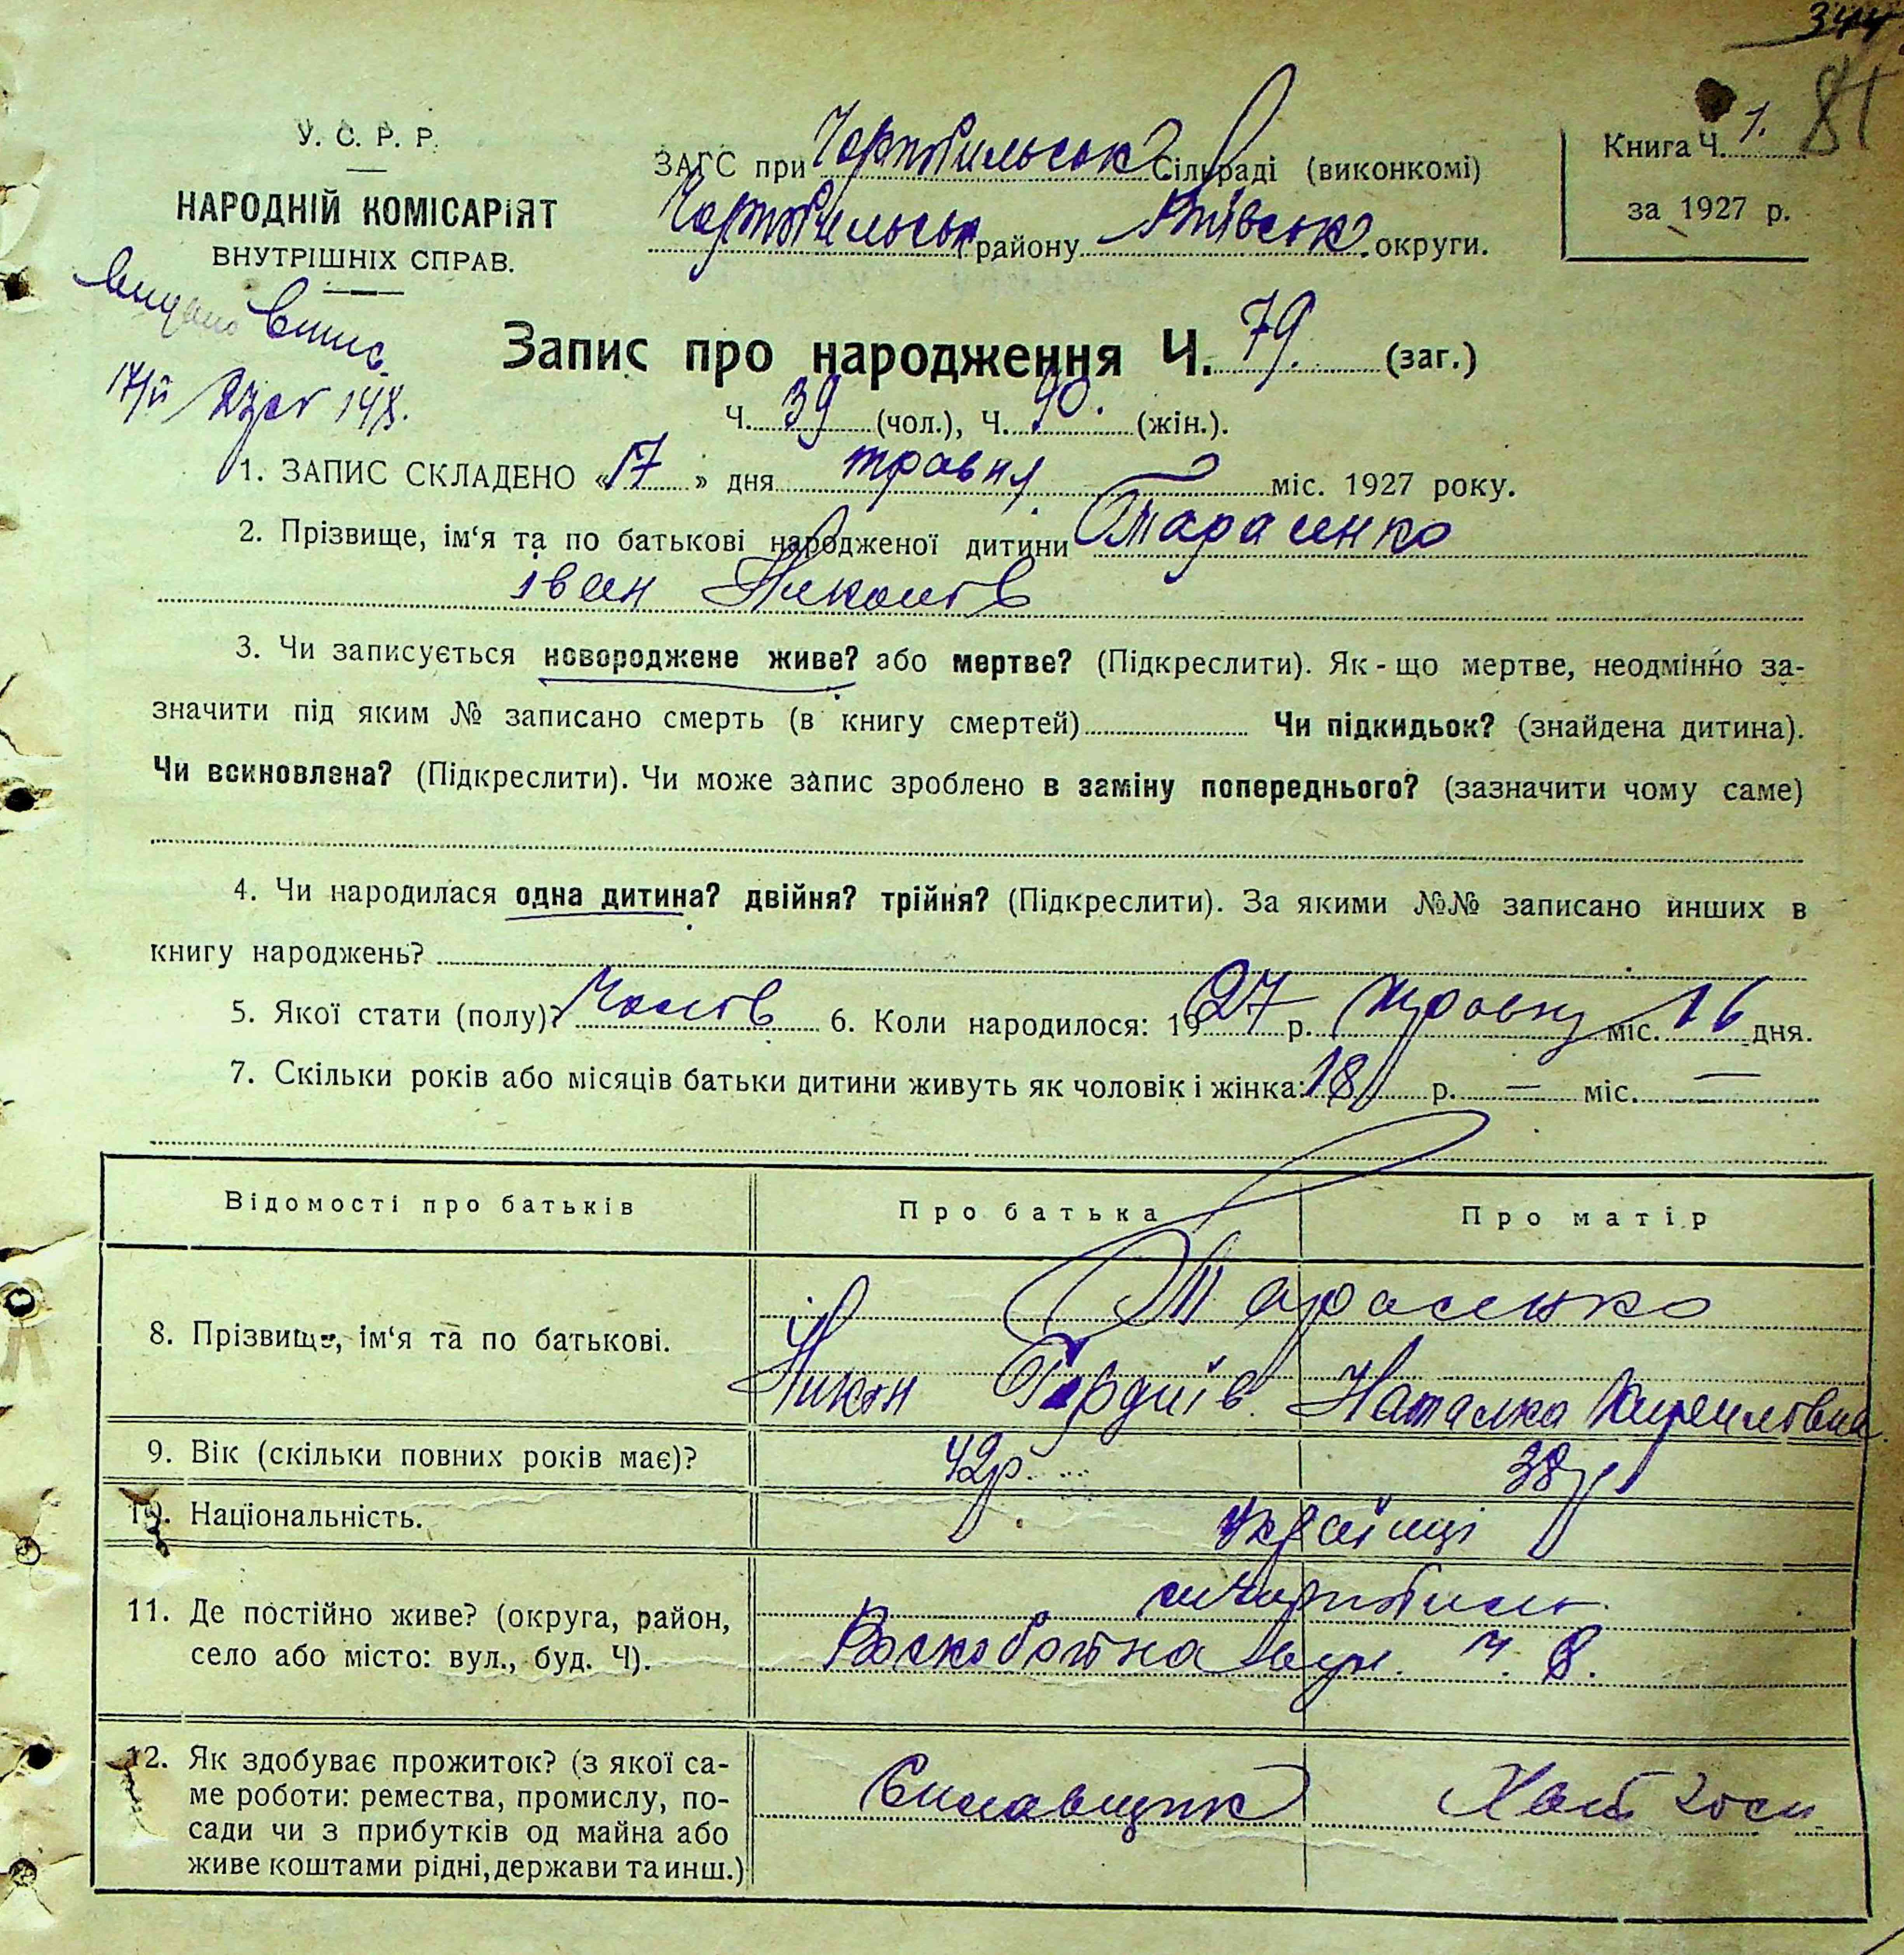 344
81
У. С. Р. Р.
НАРОДНІЙ КОМІСАРІЯТ
ВНУТРІШНІХ СПРАВ.
видано випис
ЗАГС при Чорнобильськ Сільраді (виконкомі)
Чорнобильськ району Київськ. округи.
Книга Ч. 1.
за 1927 р.
Запис про народження Ч. 79. (заг.)
Ч. 39 (чол.), Ч. 40. (жін.).
1. ЗАПИС СКЛАДЕНО «17» дня травня міс. 1927 року.
2. Прізвище, ім‘я та по батькові народженої дитини Тарасенко
Іван Никонів
3. Чи записується новороджене живе? або мертве? (Підкреслити). Як-що мертве, неодмінно за-
значити під яким № записано смерть (в книгу смертей) Чи підкидьок? (знайдена дитина).
Чи всиновлена? (Підкреслити). Чи може запис зроблено в заміну попереднього? (зазначити чому саме)
4. Чи народилася одна дитина? двійня? трійня? (Підкреслити). За якими №№ записано инших в
книгу народжень?
5. Якої стати (полу)? Чолов 6. Коли народилося: 1927 р. травня міс. 16 дня.
7. Скільки років або місяців батьки дитини живуть як чоловік і жінка: 18 р. — міс. —
Відомості про батьків Про батька Про матір
8. Прізвище, ім‘я та по батькові.
Тарасенко
Никон Гордиїв. Наталка Кириловна
9. Вік (скільки повних років має)? 42р. 38р
10. Національність. Українці
11. Де постійно живе? (округа, район,
село або місто: вул., буд. Ч).
м Чорнобиль
вул. Ч. 8.
12. Як здобуває прожиток? (з якої са-
ме роботи: ремества, промислу, по-
сади чи з прибутків од майна або
живе коштами рідні, держави та инш.)
Сплавщик Хат госп